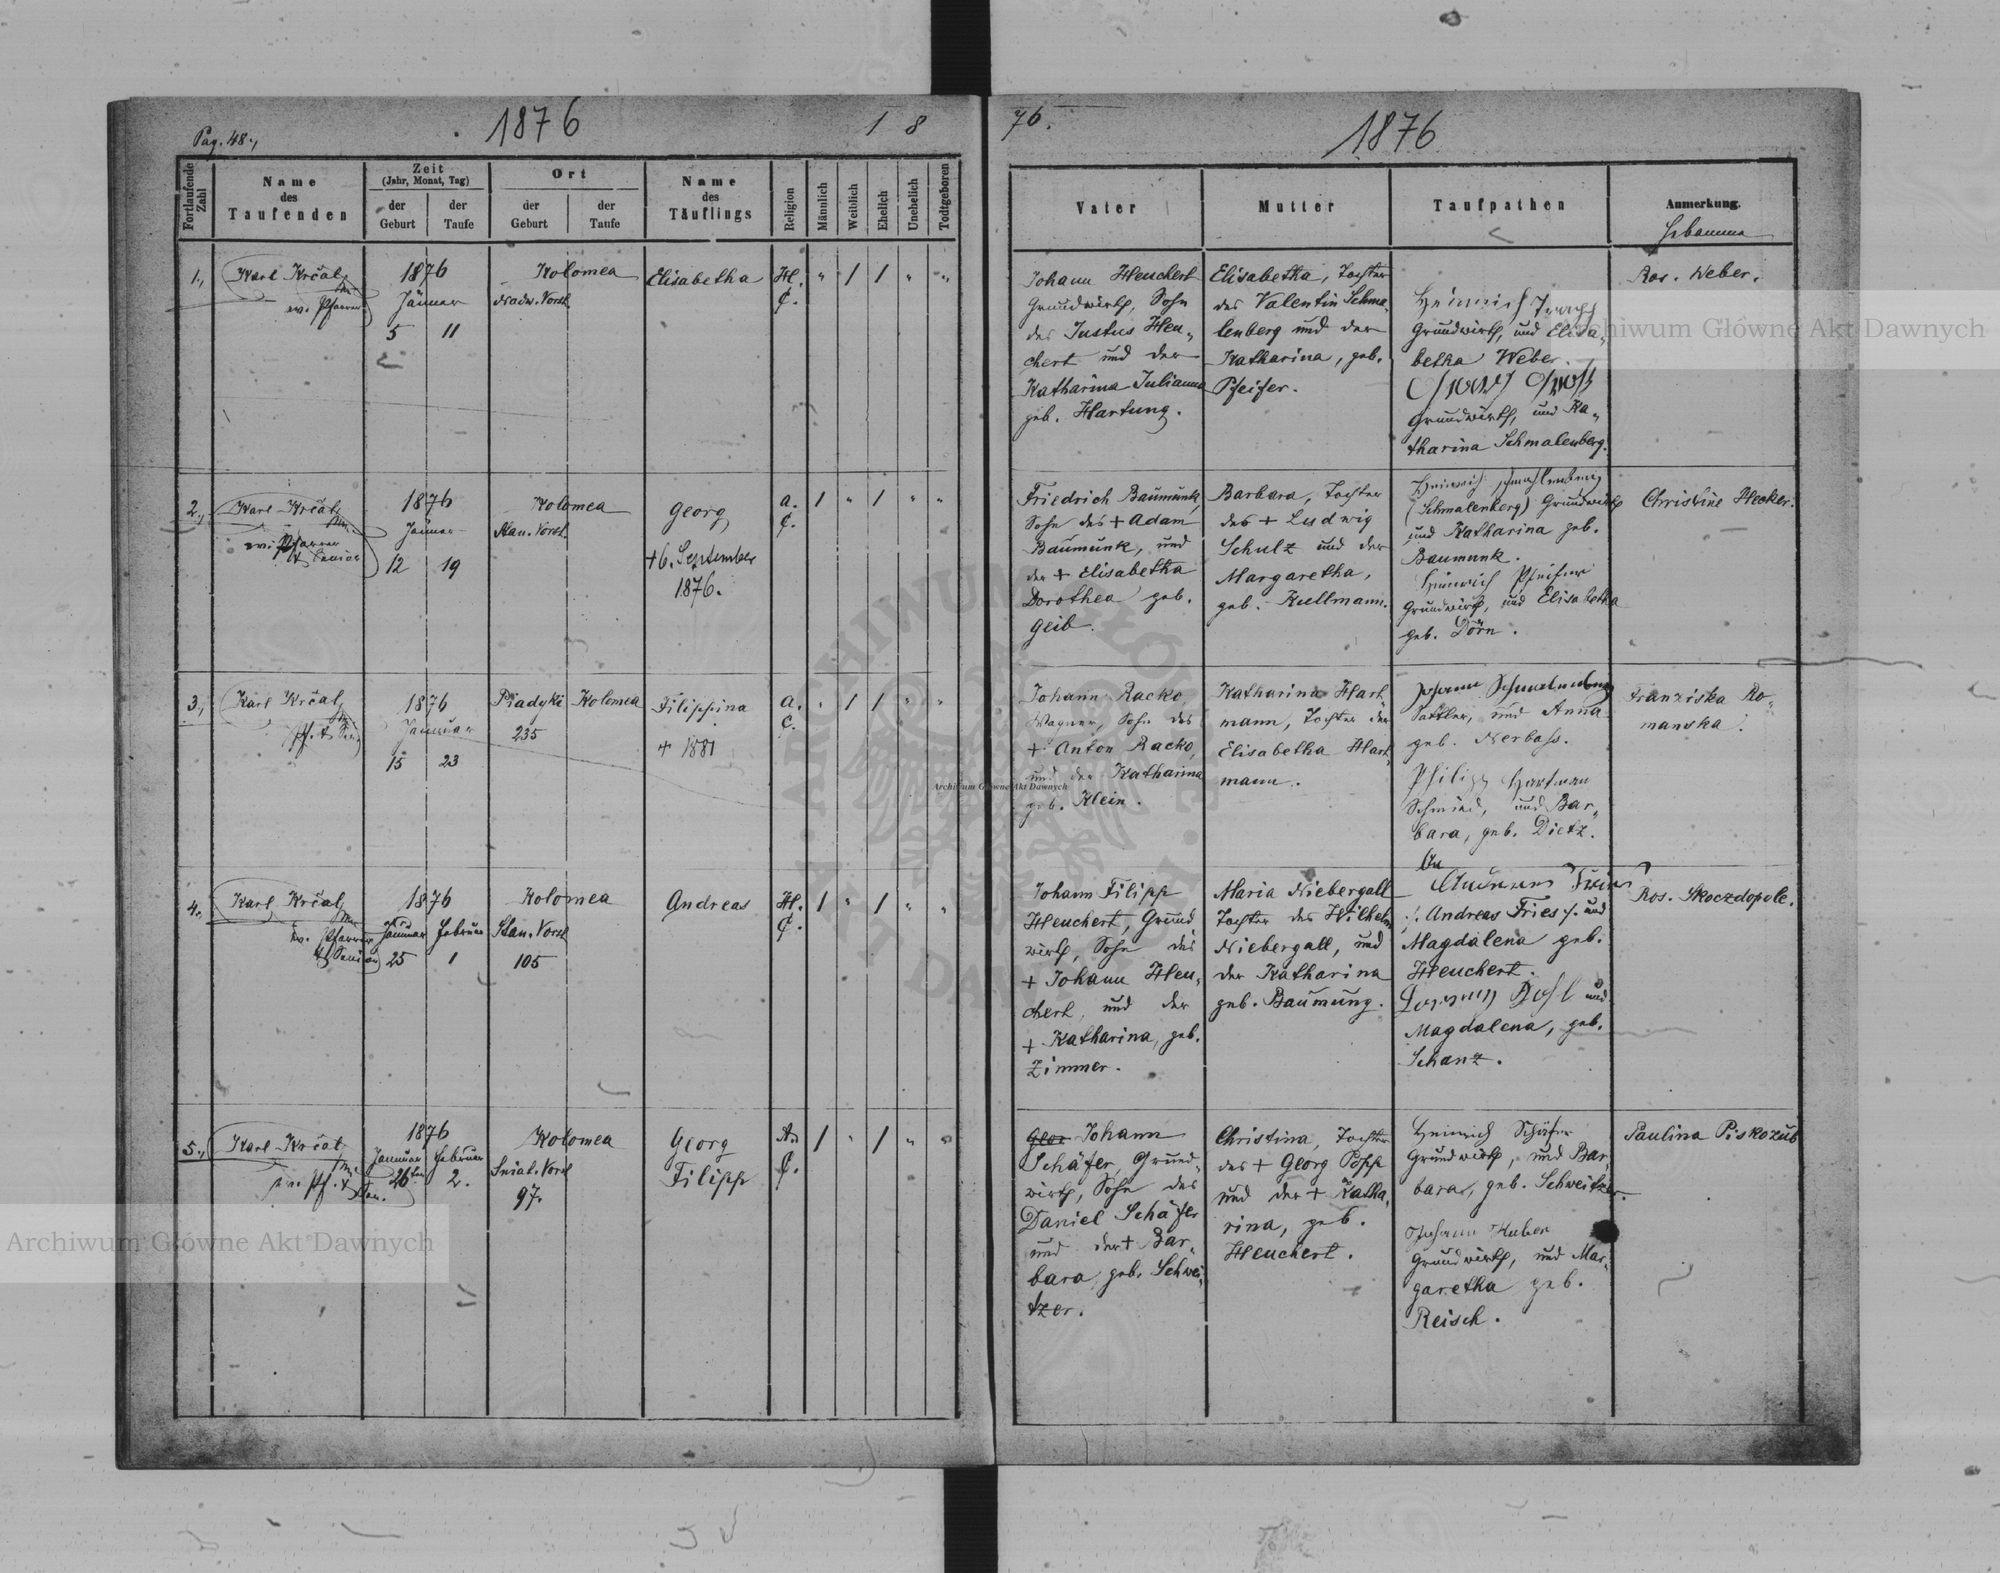 Pag. 48.,
1876
1 8
76.
1876
Fortlaufende Zahl
Name des Taufenden
Zeit
(Jahr, Monat, Tag)
der Geburt
der Taufe
Ort
der Geburt
der Taufe
Name des Täuflings
Religion
Männlich
Weiblich
Ehelich
Unehelich
Todtgeboren
Vater
Mutter
Taufpathen
Anmerkung.
Hebamme
1.,
Karl Krčal
ev. Pfarrer
1876
Jänner
5 11
Kolomea
Nadw. Vorst.
Elisabetha
H. C.
" / / " "
Johann Heuchert
Grundwirth, Sohn
des Justus Heu-
chert und der
Katharina Julianna
geb. Hartung.
Elisabetha, Tochter
des Valentin Schma-
lenberg und der
Katharina, geb.
Pfeifer.
Heinrich
Grundwirth, und Elisa-
betha Weber.
Grundwirth, und Ka-
tharina Schmalenberg.
Ros. Weber.
2.,
Karl Krčal
ev. Pfarrer
& Senior
1876
Jänner
12 19
Kolomea
Stan. Vorst.
Georg
+ 6. September
1876.
A. C.
/ " / " "
Friedrich Baumunk,
Sohn des + Adam
Baumunk, und
der + Elisabetha
Dorothea geb.
Geib.
Barbara, Tochter
des + Ludwig
Schulz und der
Margaretha,
geb. Kullmann.
Heinrich Schmahlenberg
(Schmalenberg) Grundwirth
und Katharina geb.
Baumunk.
Heinrich Pfeifer
Grundwirth, und Elisabetha
geb. Dörn.
Christine Hecker.
3.,
Karl Krčal
Pf. & Sen.
1876
Januar
15 23
Piadyki Kolomea
235
Filippina
+ 1881
A. C.
" / / " "
Johann Racko,
Wagner, Sohn des
+ Anton Racko,
und der Katharina
geb. Klein.
Katharina Hart-
mann, Tochter der
Elisabetha Hart-
mann.
Johann
Sattler, und Anna
geb. Nerbass.
Philipp Hartman
Schmied, und Bar-
bara, geb. Dietz.
Franziska Ro-
manska.
4.
Karl Krčal
ev. Pfarrer
& Senior
1876
Januar Februar
25 1
Kolomea
Stan. Vorst
105
Andreas
H. C.
/ " / " "
Johann Filipp
Heuchert, Grund-
wirth, Sohn des
+ Johann Heu-
chert, und der
+ Katharina, geb.
Zimmer.
Maria Niebergall
Tochter des Wilhelm
Niebergall, und
der Katharina
geb. Baumung.
An
Andreas Fries
/: Andreas Fries :/ und
Magdalena geb.
Heuchert.
und
Magdalena, geb.
Schanz.
Ros. Skoczdopole.
5.,
Karl Krčal
ev. Pf. & Sen.
1876
Januar Februar
26ten 2.
Kolomea
Sniat. Vorst
97.
Georg
Filipp
A. C.
/ " / " "
Geor Johann
Schäfer, Grund-
wirth, Sohn des
Daniel Schäfer
und der + Bar-
bara, geb. Schwei-
tzer.
Christina, Tochter
des + Georg Popp
und der + Katha-
rina, geb.
Heuchert.
Heinrich Schäfer
Grundwirth, und Bar-
bara, geb. Schweitzer.
Johann Huber
Grundwirth, und Mar-
garetha geb.
Reisch.
Paulina Piskozub
Archiwum Główne Akt Dawnych
Archiwum Główne Akt Dawnych
Archiwum Główne Akt Dawnych